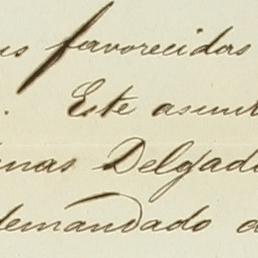 us favorecidas
. Este asun
nas Delgado
demandado a